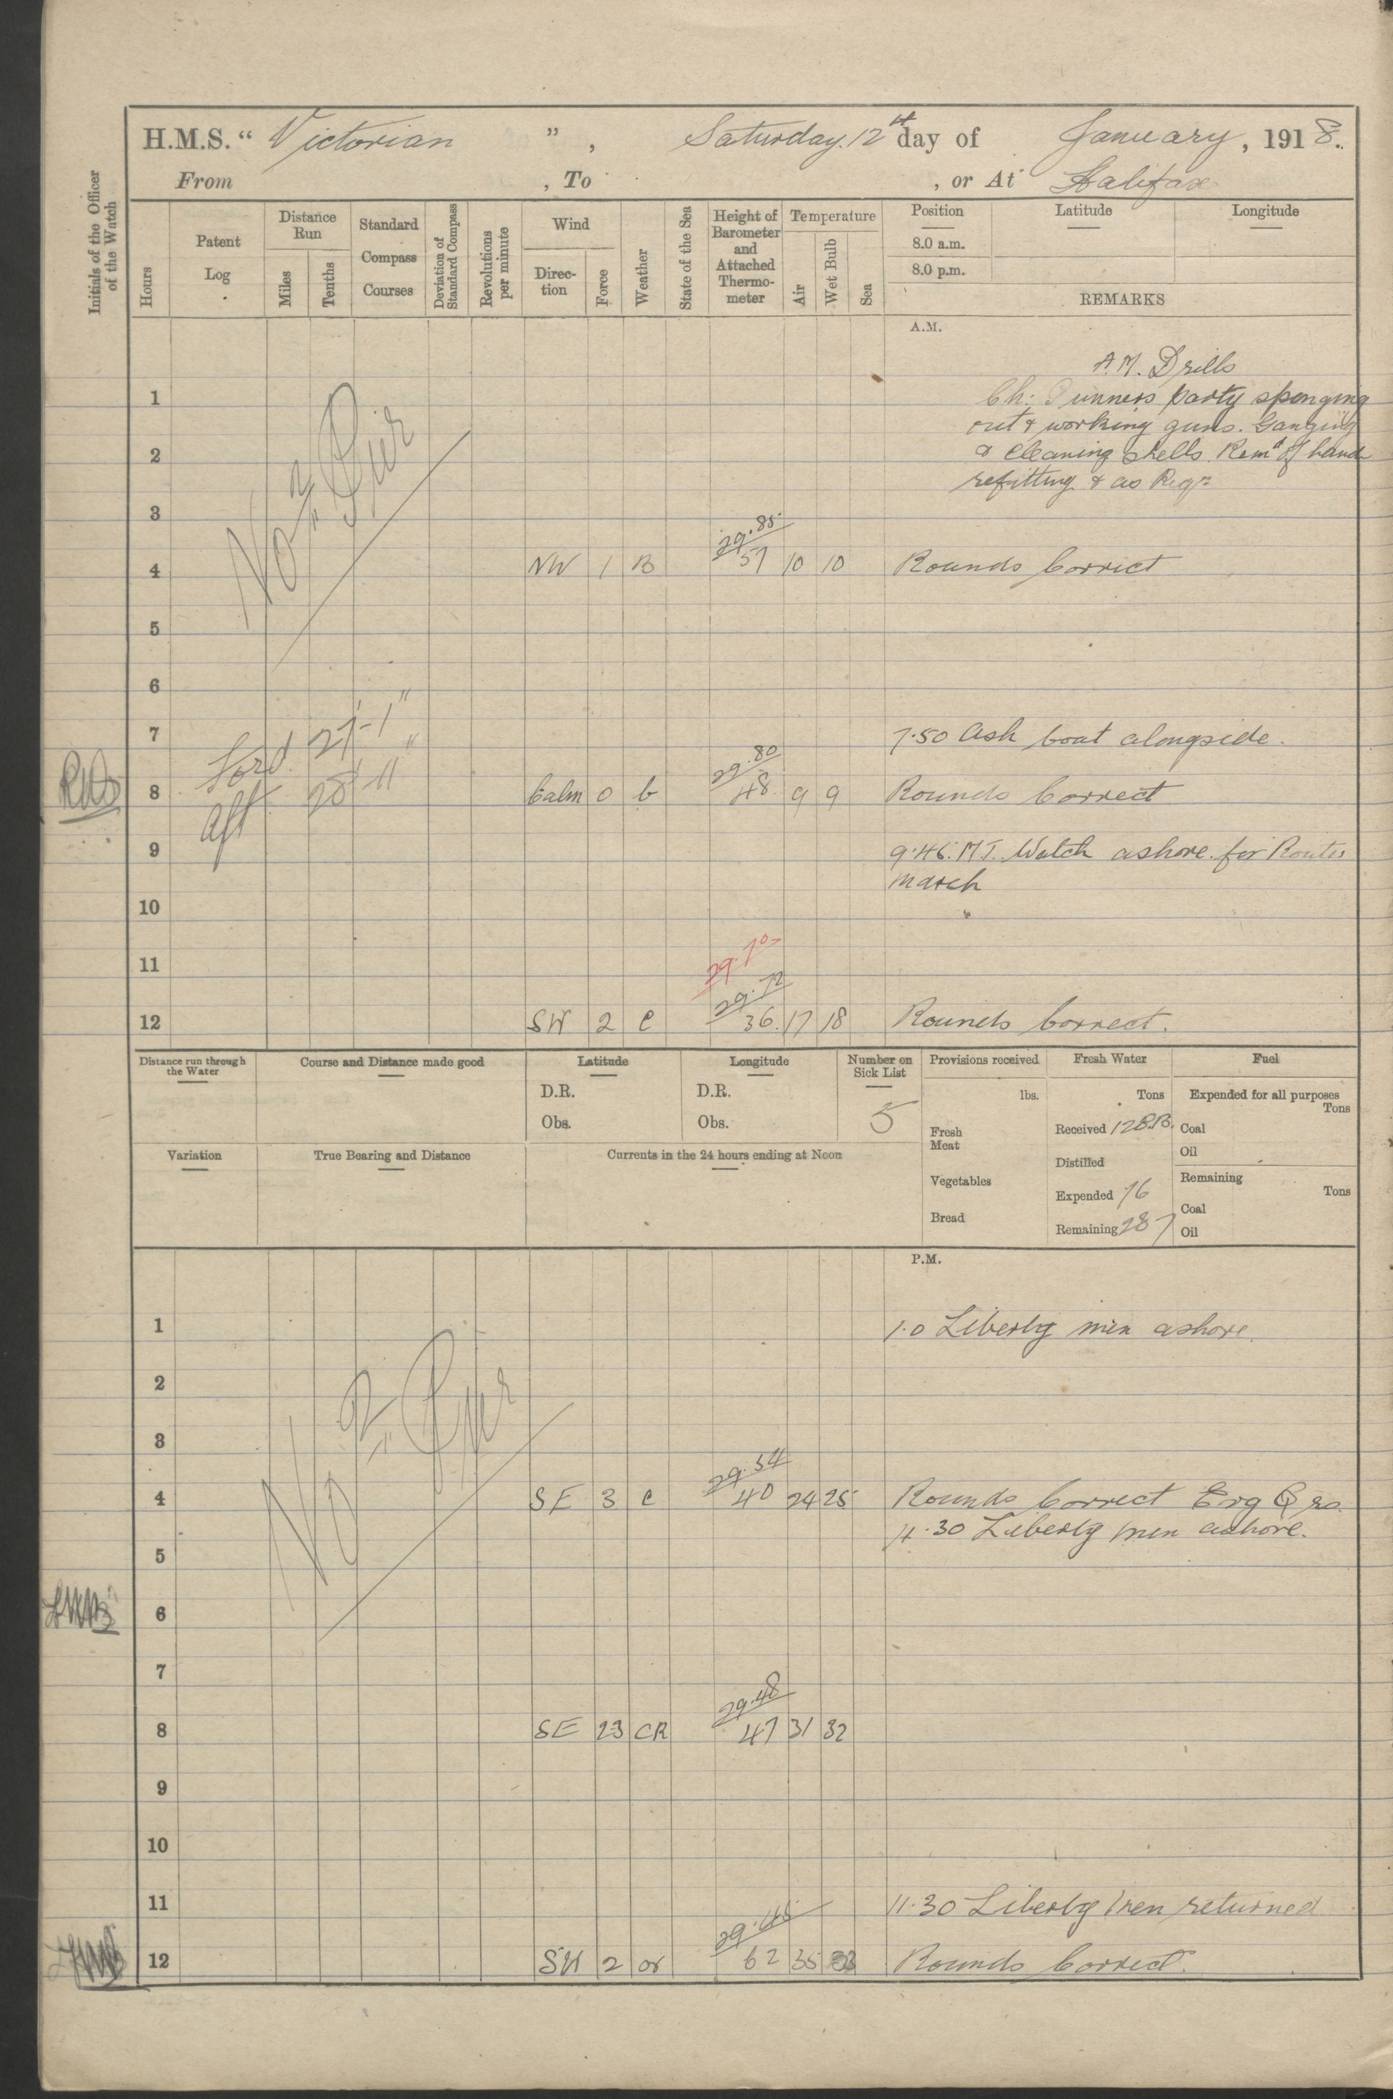 H.M.S. “ Victorian ”, Saturday. 12th day of January, 1918.
From , To , or At Halifax
Initials of the Officer of the Watch
Hours
Patent Log
Distance Run
Miles
Tenths
Standard Compass Courses
Deviation of Standard Compass
Revolutions per minute
Wind
Direc-tion
Force
Weather
State of the Sea
Height of Barometer and Attached Thermo-meter
Temperature
Air
Wet Bulb
Sea
Position
Latitude
Longitude
8.0 a.m.
8.0 p.m.
REMARKS
A.M.
A.M. Drills
1 Ch: Gunners party sponging
out & working guns. Ganging
2 & cleaning shells. Remd of hands
refitting & as Reqr
No "2" Pier
3
29.85
4 NW 1 B 57 10 10 Rounds Correct
5
6
7 Ford 27'-1" 7.50 Ash boat alongside.
29.80
8 aft 28' 11" Calm 0 b 48 9 9 Rounds Correct
9 9.45. M.T. Watch ashore for Route
march
10
11 29.70
29.72
12 SW 2 C 36 17 18 Rounds Correct.
Distance run through the Water
Course and Distance made good
Latitude
D.R.
Obs.
Longitude
D.R.
Obs.
Number on Sick List
5
Provisions received
lbs.
Fresh Meat
Vegetables
Bread
Fresh Water
Tons
Received 128.B.
Distilled
Expended 76
Remaining 287
Fuel
Expended for all purposes
Tons
Coal
Oil
Remaining
Tons
Coal
Oil
Variation
True Bearing and Distance
Currents in the 24 hours ending at Noon
P.M.
1 1.0 Liberty men ashore.
2
No "2" Pier
3
29.54
4 SE 3 C 40 24 25 Rounds Correct Evg Qrs.
4.30 Liberty men ashore.
5
6
7
29.48
8 SE 23 CR 47 31 32
9
10
11 11.30 Liberty men returned
12 SW 2 or 62 35 Rounds Correct.